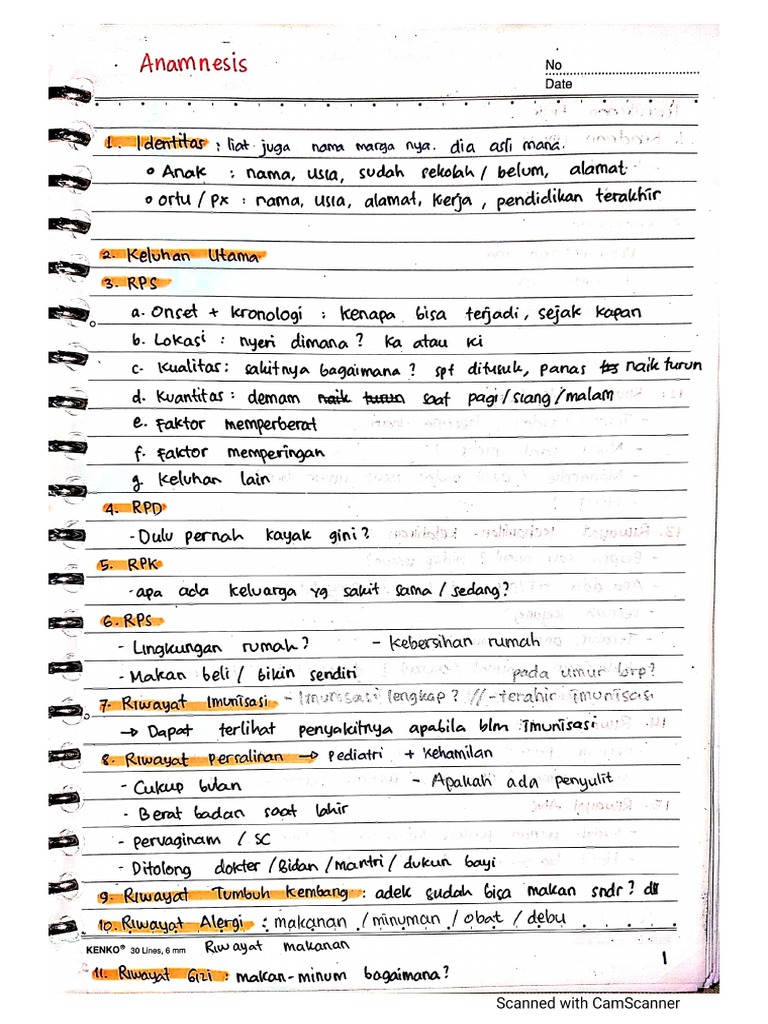 Anamnesis
No
Date
1. Identitas : liat juga nama marga nya. dia asli mana.
• Anak : nama, usia, sudah sekolah / belum, alamat
• ortu / px : nama, usia, alamat, kerja, pendidikan terakhir
2. Keluhan Utama
3. RPS
a. Onset + kronologi : kenapa bisa terjadi, sejak kapan
b. Lokasi : nyeri dimana? ka atau ki
c. Kualitas : sakitnya bagaimana? spt ditusuk, panas naik turun
d. Kuantitas : demam naik turun saat pagi/siang/malam
e. Faktor memperberat
f. Faktor memperingan
g. Keluhan lain
4. RPD
- Dulu pernah kayak gini?
5. RPK
- apa ada keluarga yg sakit sama / sedang?
6. RPS
- Lingkungan rumah? - Kebersihan rumah
- Makan beli / bikin sendiri pada umur brp?
7. Riwayat Imunisasi - Imunisasi lengkap? // - terahir imunisasi
→ Dapat terlihat penyakitnya apabila blm imunisasi
8. Riwayat Persalinan → pediatri + kehamilan
- Cukup bulan - Apakah ada penyulit
- Berat badan saat lahir
- pervaginam / SC
- Ditolong dokter / Bidan / mantri / dukun bayi
9. Riwayat Tumbuh Kembang : adek sudah bisa makan sndr? dll
10. Riwayat Alergi : makanan / minuman / obat / debu
KENKO® 30 Lines, 6 mm Riwayat makanan 1
11. Riwayat Gizi : makan-minum bagaimana?
Scanned with CamScanner